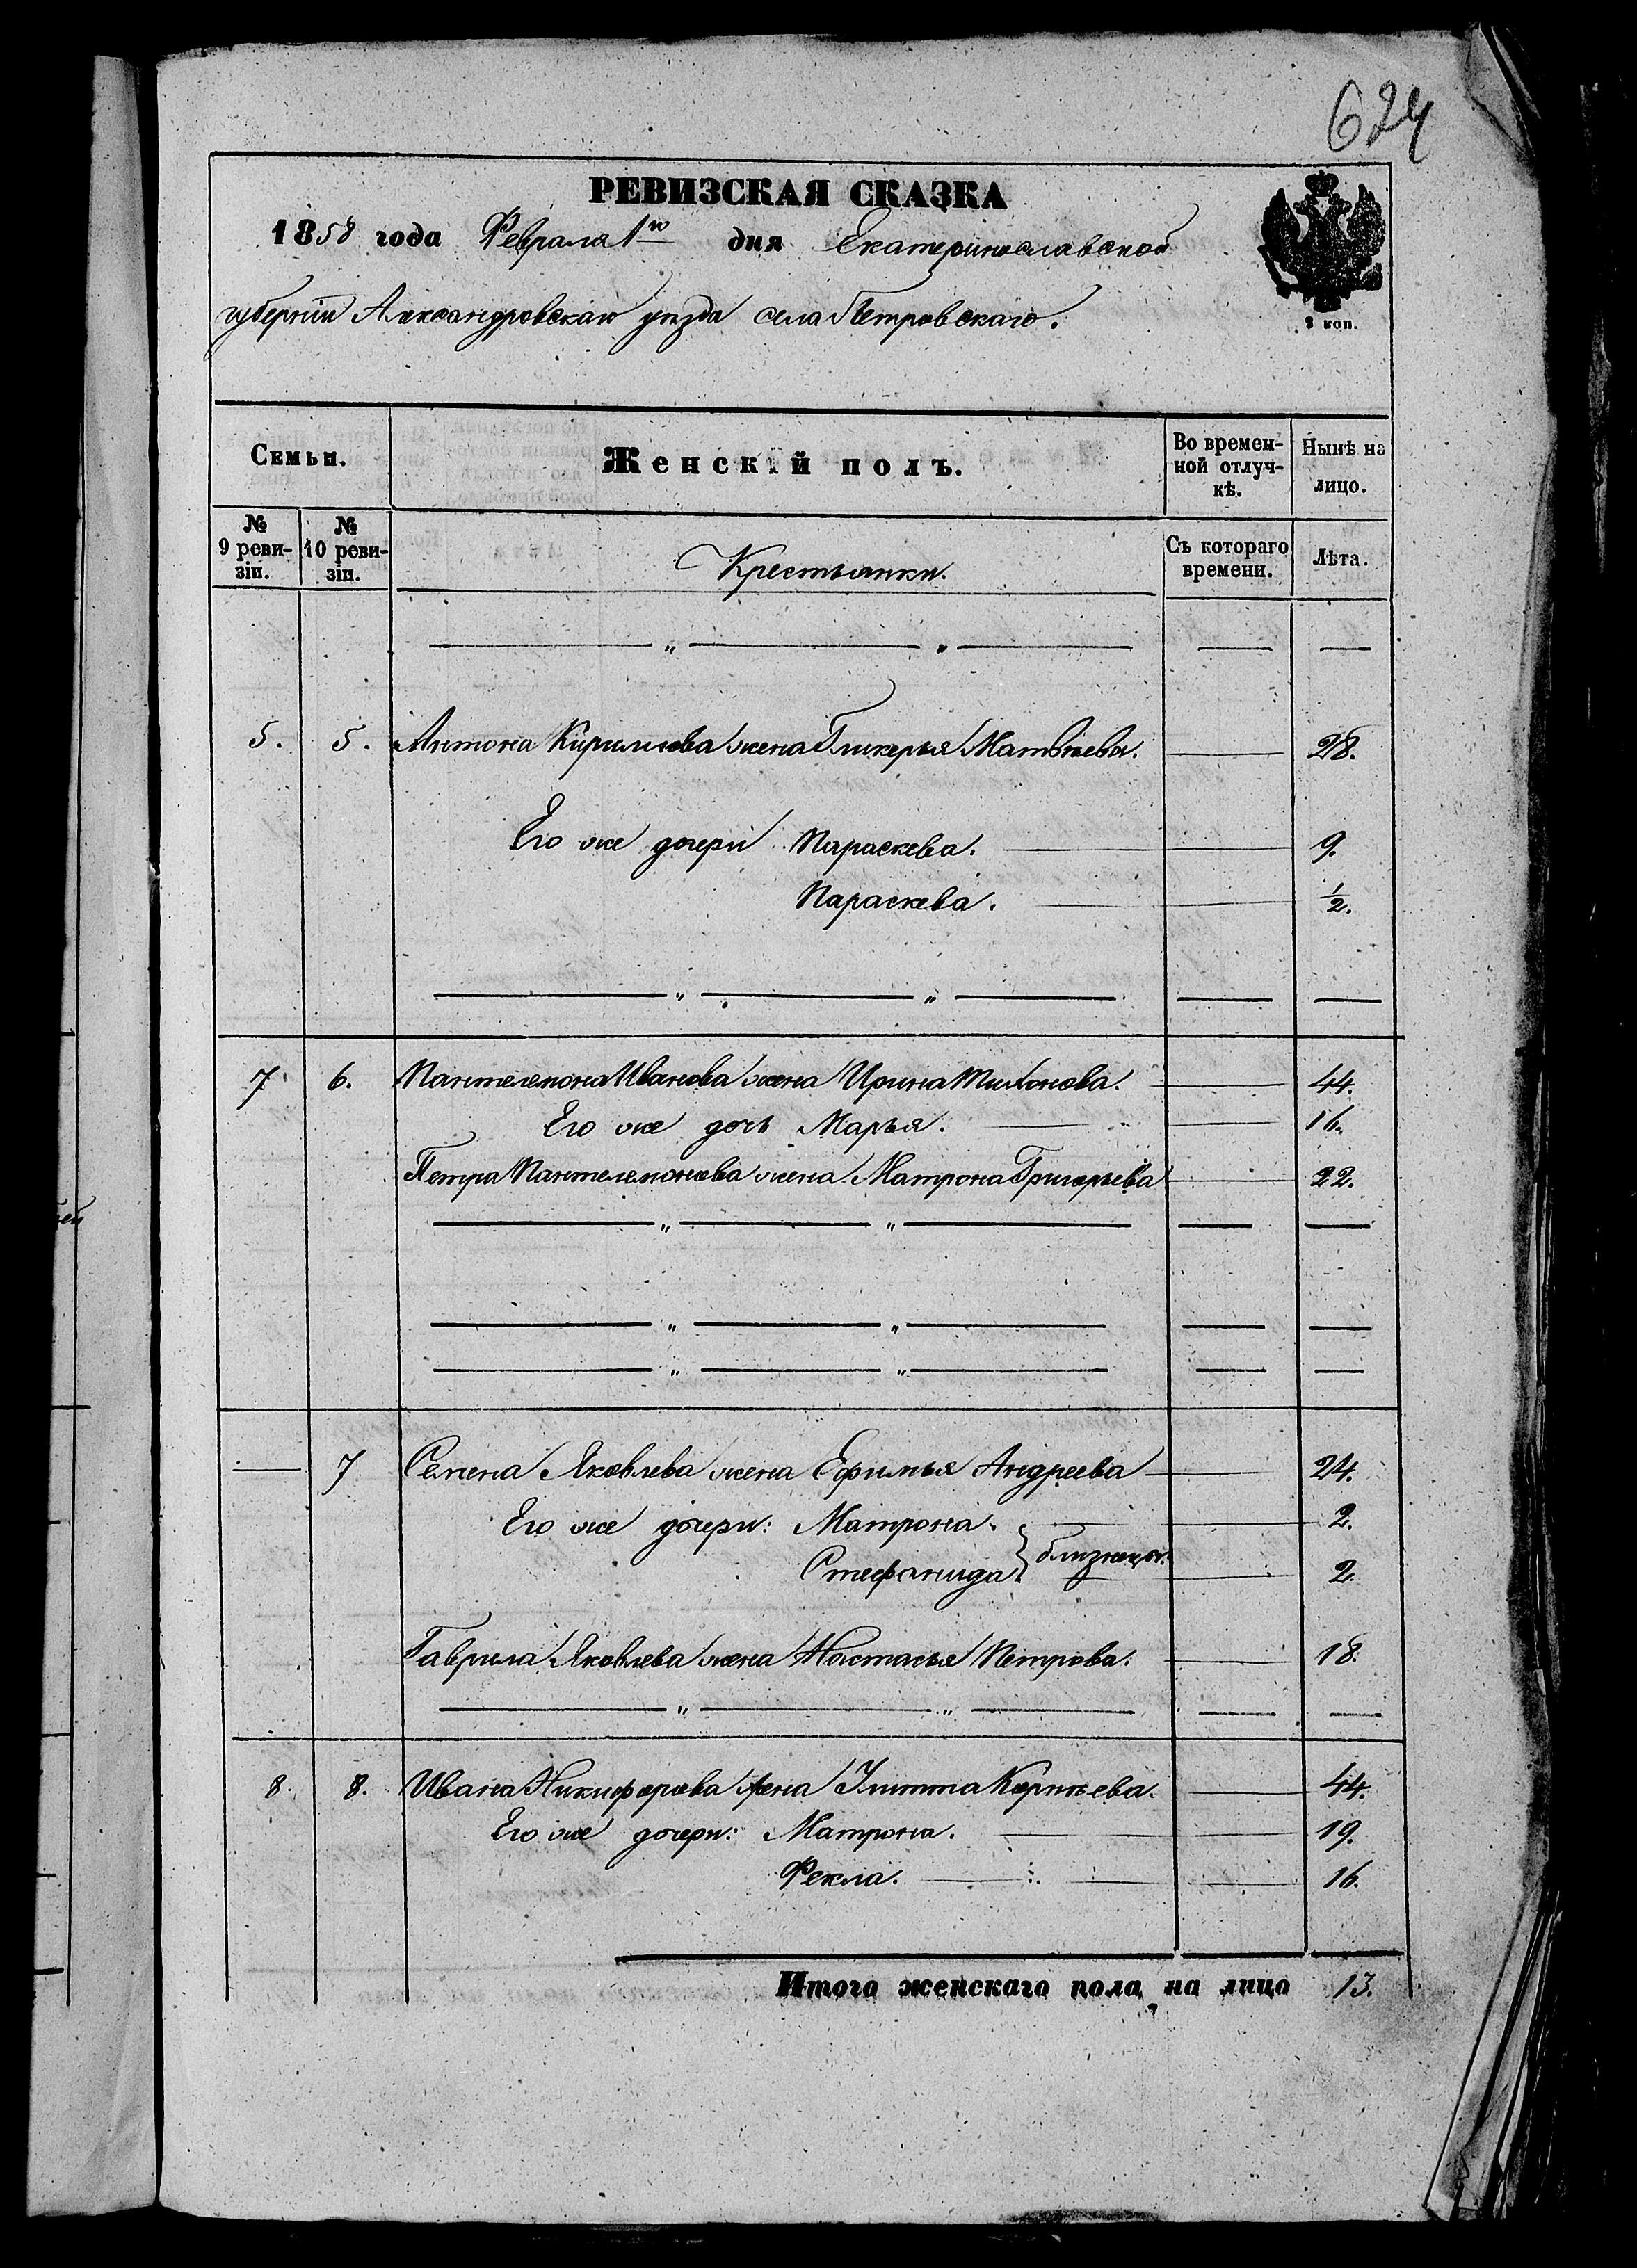 624
РЕВИЗСКАЯ СКАЗКА
1858 года Февраля 1го дня Екатеринославской
губерніи Александровскаго уѣзда села Петровскаго.
2 коп.
Семьи.
Женскій полъ.
Во времен-
ной отлуч-
кѣ.
Нынѣ на
лицо.
№
9 реви-
зіи.
№
10 реви-
зіи.
Крестьянки.
Съ котораго
времени.
Лѣта.
5. 5. Антона Кирилова жена Гликерья Матвѣева. 28.
Его же дочери Параскева. 9.
Параскева. 1/2.
7 6. Пантелемона Иванова жена Ирина Тихонова. 44.
Его же дочь Марья. 16.
Петра Пантелемонова жена Матрона Григорьева 22.
7 Семена Яковлева жена Ефимья Андреева 24.
Его же дочери: Матрона. 2.
Стефанида близнецы. 2.
Гаврила Яковлева жена Настасья Петрова. 18.
8. 8. Ивана Никифорова жена Улитта Корнѣева. 44.
Его же дочери: Матрона. 19.
Фекла. 16.
Итого женскаго пола на лицо 13.